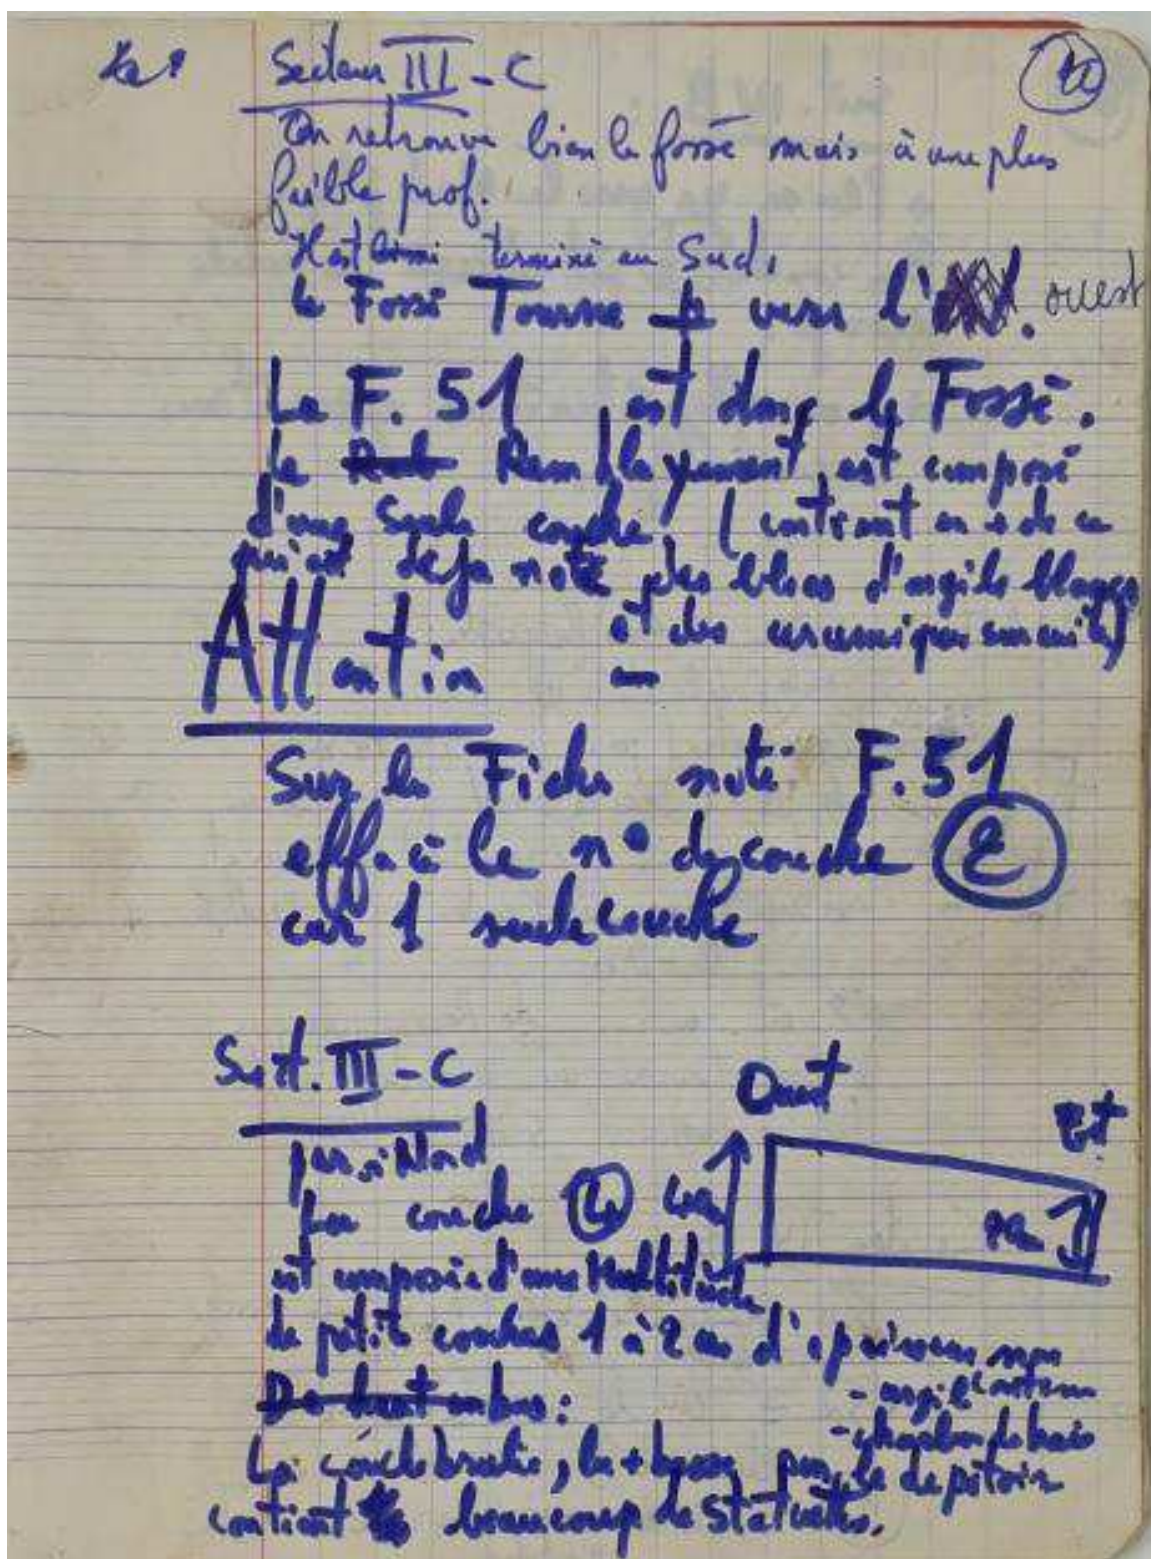 Secteur III - C
On retrouve bien le fossé mais à une plus
faible prof.
terminé au Sud.
le Fossé Tourne vers l' ouest
Le F. 51 est donc le Fossé.
Le Remblayement est composé
d'une Seule couche, (contient en + de ce
qui est deja noté des blocs d'argile blanche
et des ceramiques surcuites)
Attention
Sur la Fiche noté F. 51
effacé le n° de couche 2
car 1 seule couche
Sect. III - C
paroi Nord
Ouest
Est
La couche 4
est composée d'une Multitude
de petite couches 1 à 2 cm d'epaisseur
- argile
De haut en bas :
- charbon de bois
la + basse
contient beaucoup de Statuettes.